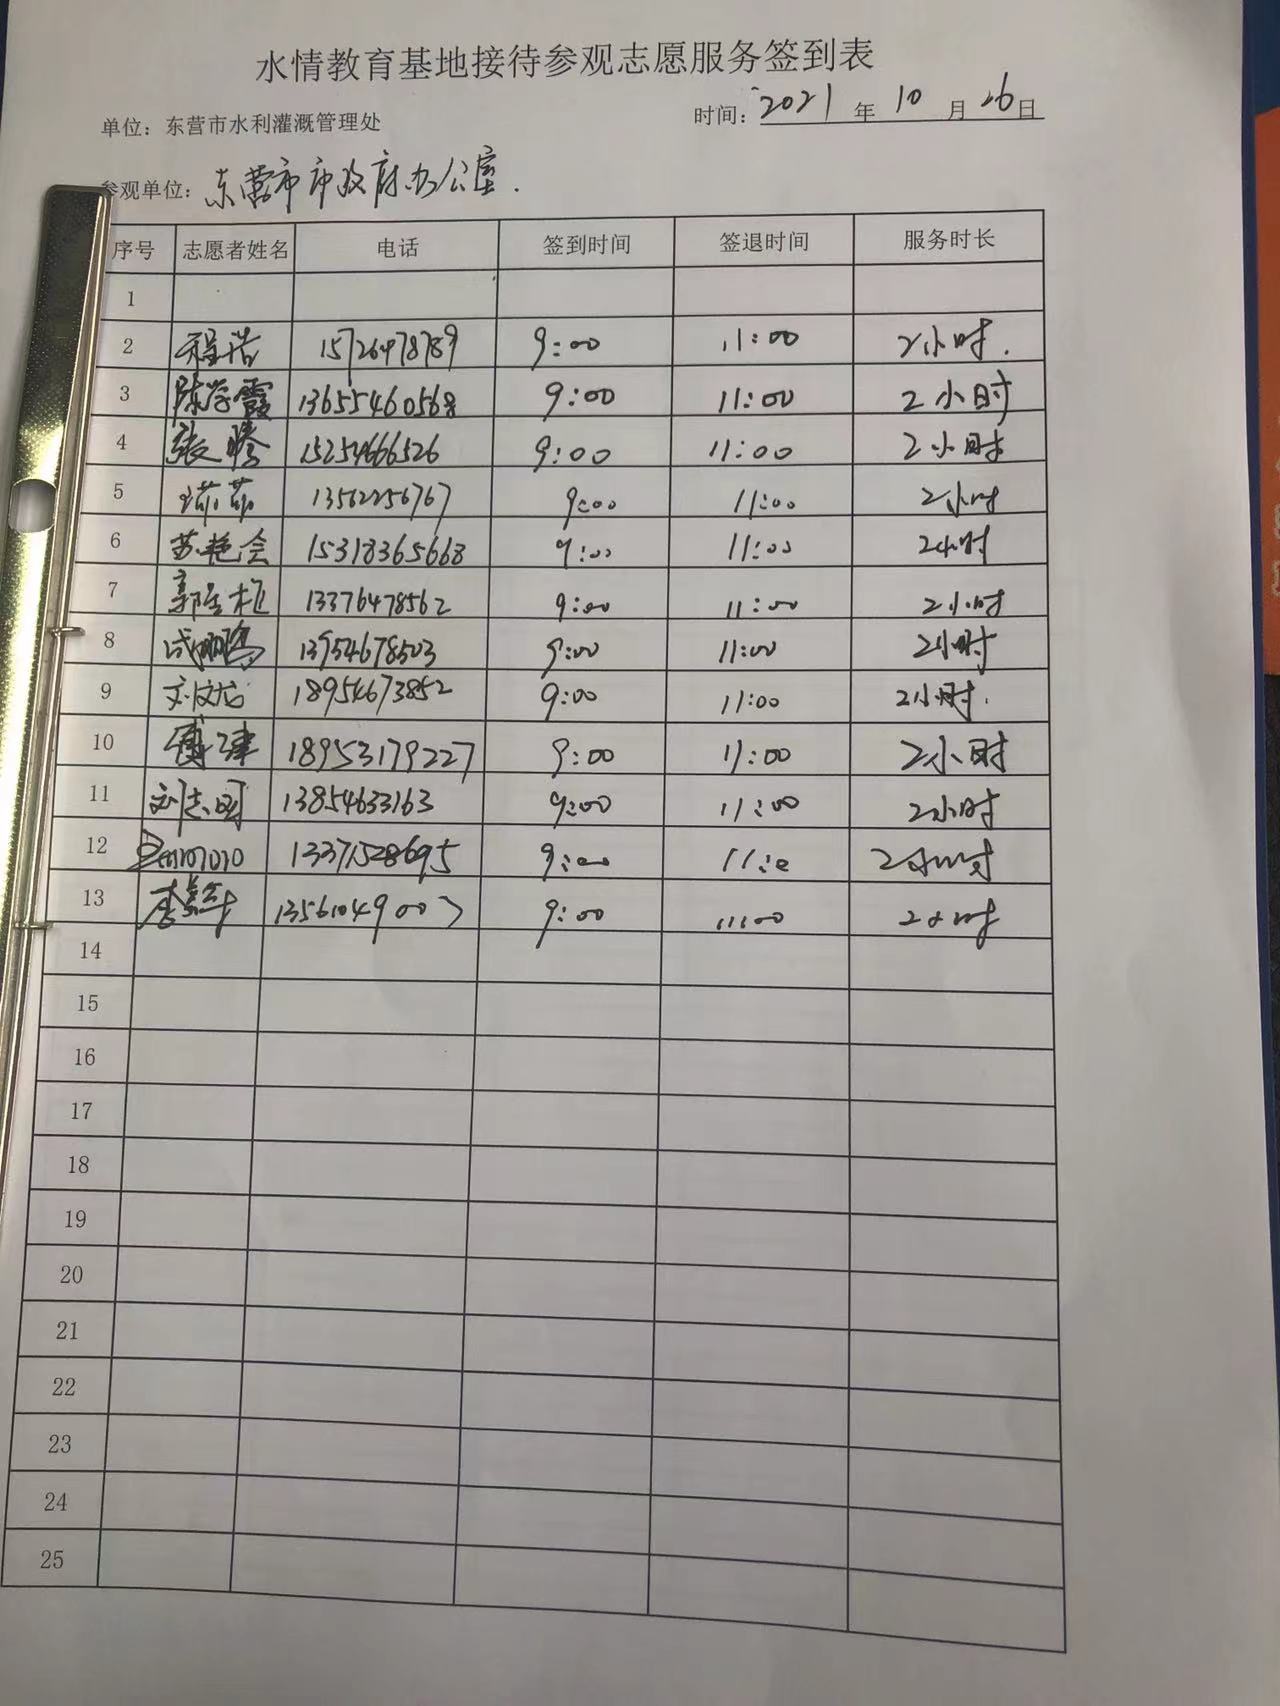 水情教育基地接待参观志愿服务签到表
单位：东营市水利灌溉管理处 时间：2021年10月26日
参观单位：东营市市政府办公室.
序号 志愿者姓名 电话 签到时间 签退时间 服务时长
1
2 程浩 15726478789 9:00 11:00 2小时.
3 陈学霞 13655460568 9:00 11:00 2小时
4 张腾 15254666526 9:00 11:00 2小时
5 13562256767 9:00 11:00 2小时
6 苏艳会 15318365668 9:00 11:00 2小时
7 13376478562 9:00 11:00 2小时
8 成鹏 13954678503 9:00 11:00 2小时
9 刘文龙 18954673852 9:00 11:00 2小时.
10 18953179227 9:00 11:00 2小时
11 刘志国 13854633163 9:00 11:00 2小时
12 13371528695 9:00 2小时
13 13561049007 9:00 11:00 2小时
14
15
16
17
18
19
20
21
22
23
24
25